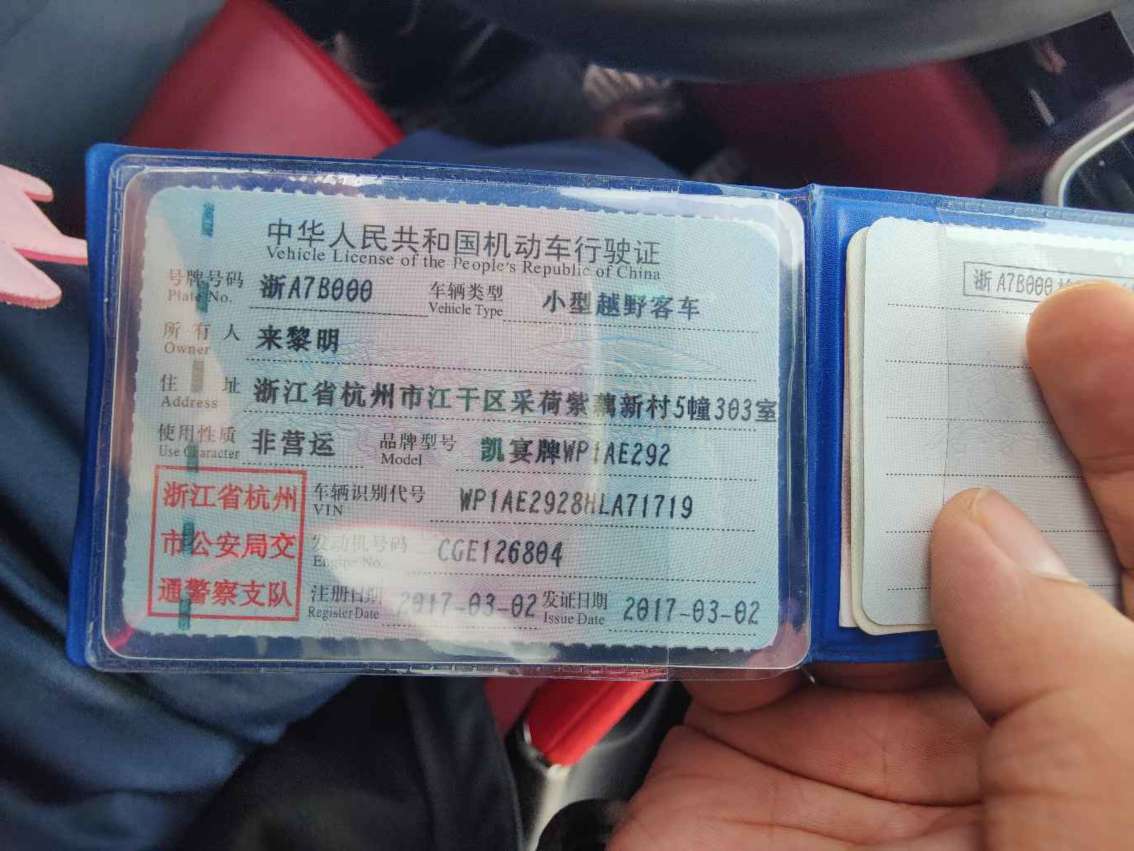 中华人民共和国机动车行驶证
Vehicle License of the People's Republic of China
号牌号码 浙A7B000 车辆类型 小型越野客车
Plate No. Vehicle Type
所有人 来黎明
Owner
住址 浙江省杭州市江干区采荷紫藕新村5幢303室
Address
使用性质 非营运 品牌型号 凯宴牌WP1AE292
Use Character Model
浙江省杭州
市公安局交
通警察支队
车辆识别代号 WP1AE2928HLA71719
VIN
发动机号码 CGE126804
Engine No.
注册日期 2017-03-02 发证日期 2017-03-02
Register Date Issue Date
浙A7B000